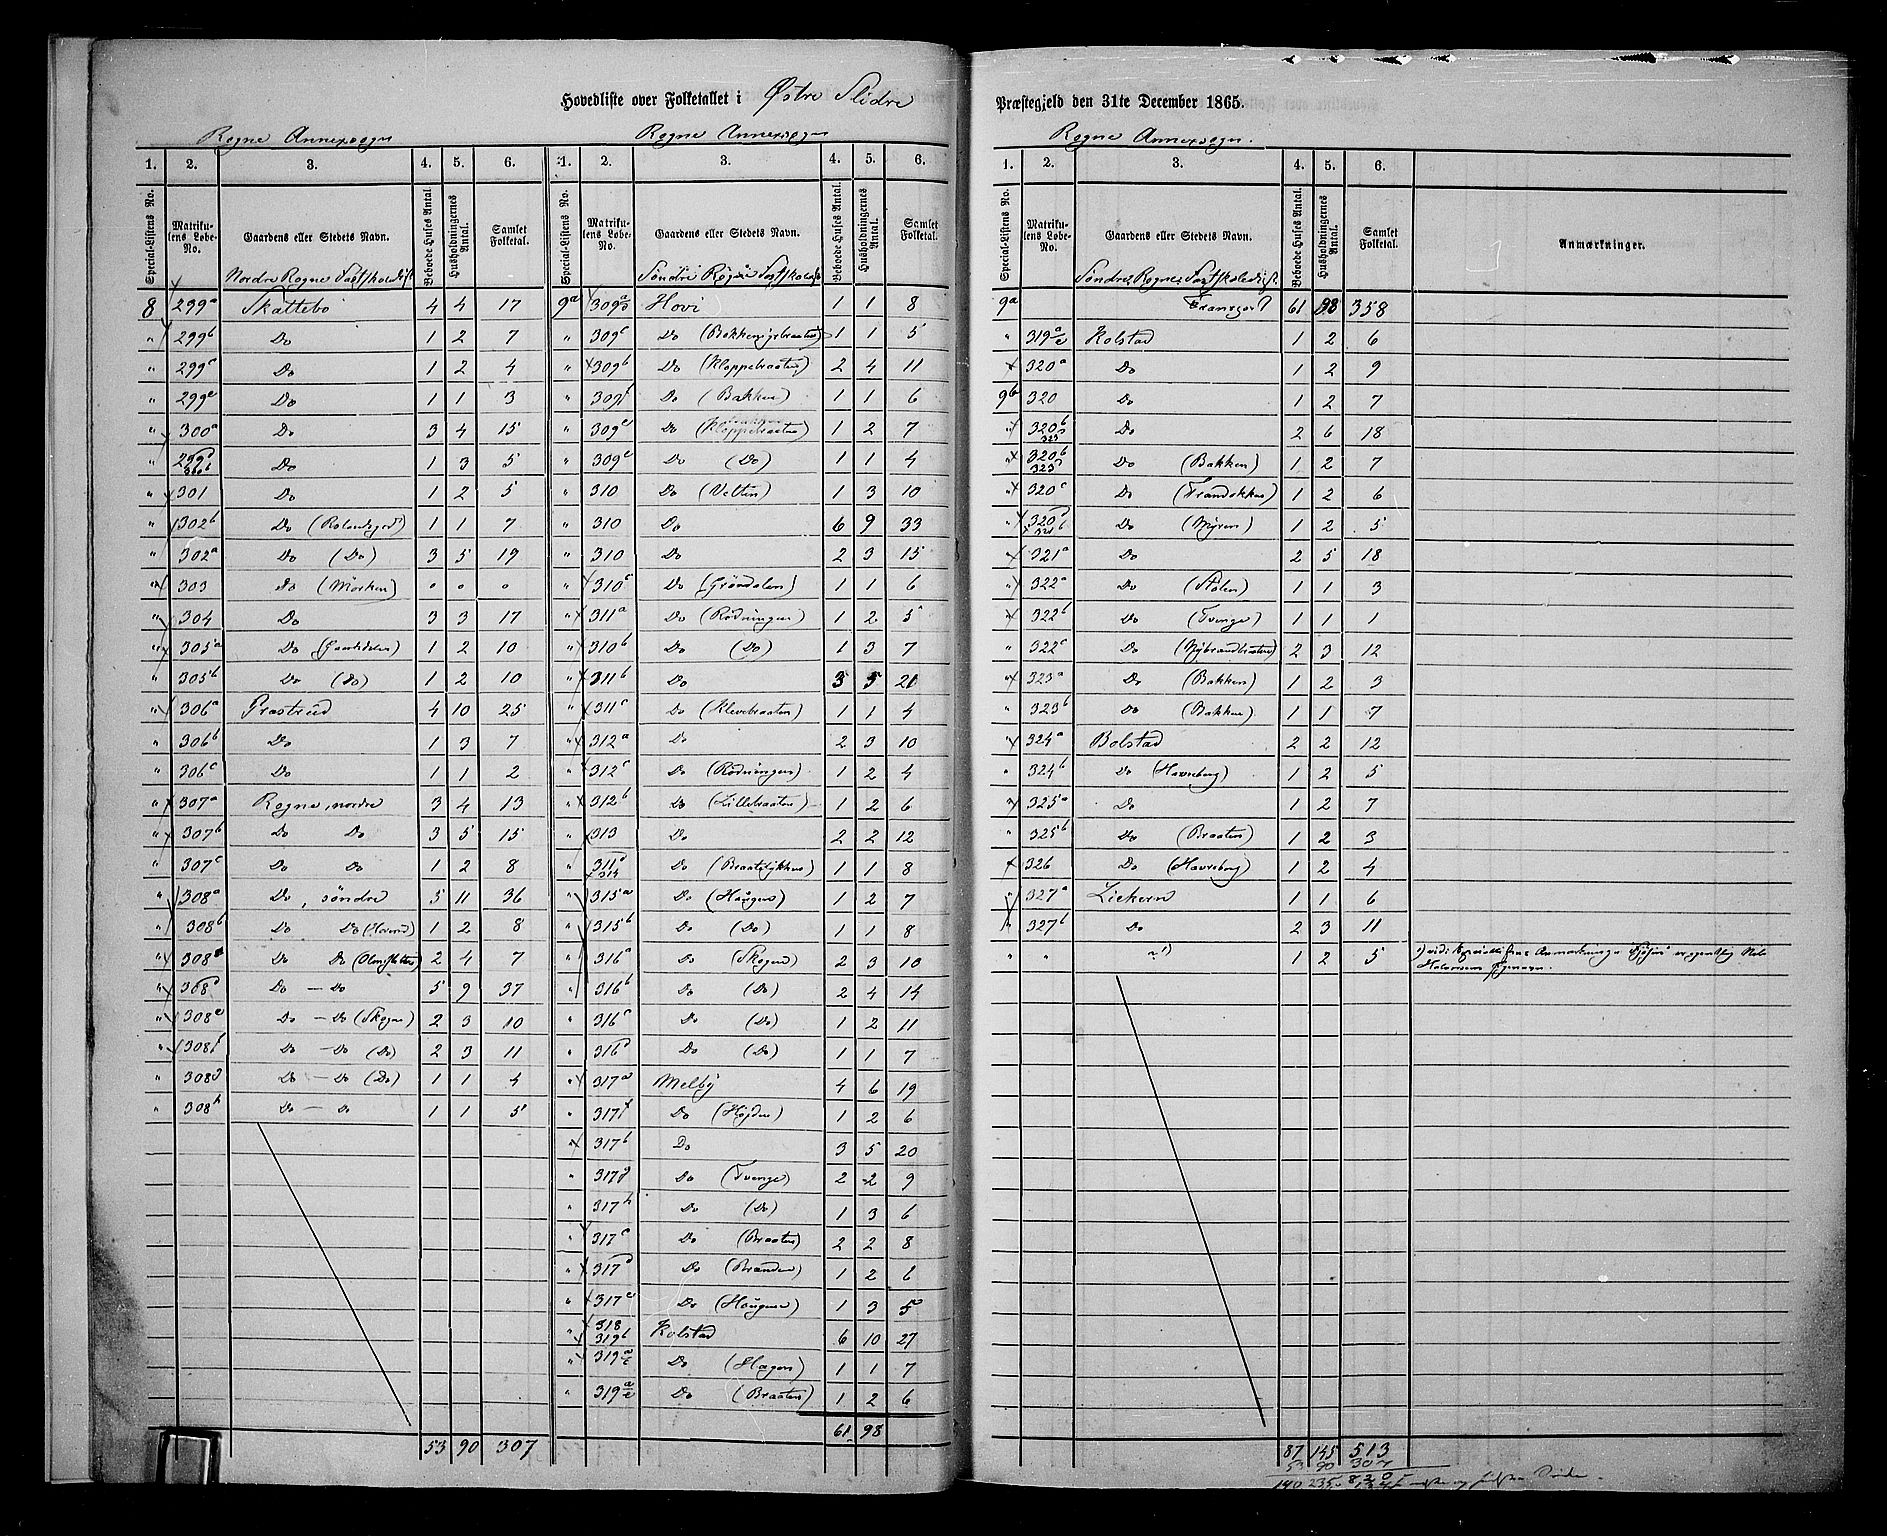 Hovedliste over Folketallet i Østre Slidre
Præstegjeld den 31te December 1865.
Rogne Annexsogn
1. 2. 3. 4. 5. 6.
Special-Listens No. Matrikulens Løbe-No. Gaardens eller Stedets Navn. Beboede Huses Antal. Husholdningernes Antal. Samlet Folketal.
Nordre Rogne Fastskoledist
8 299a Skattebo 4 4 17
" 299b Do 1 2 7
" 299c Do 1 2 4
" 299e Do 1 1 3
" 300a Do 3 4 15
" 299d 300b Do 1 3 5
" 301 Do 1 2 5
" 302b Do (Rolandsgrd) 1 1 7
" 302a Do (Do) 3 5 19
" 303 Do (Mörken) " " "
" 304 Do 3 3 17
" 305a Do 1 2 10
" 305b Do (Do) 1 2 10
" 306a Præstrud 4 10 25
" 306b Do 1 3 7
" 306c Do 1 1 2
" 307a Rogne, nordre 3 4 13
" 307b Do Do 3 5 15
" 307c Do Do 1 2 8
" 308a Do, söndre 5 11 36
" 308b Do Do 1 2 8
" 308 Do Do 2 4 7
" 308d Do - Do 5 9 37
" 308e Do - Do (Skogen) 2 3 10
" 308f Do - Do (Do) 2 3 11
" 308g Do - Do (Do) 1 1 4
" 308h Do - Do 1 1 5
53 90 307
Rogne Annexsogn
1. 2. 3. 4. 5. 6.
Special-Listens No. Matrikulens Løbe-No. Gaardens eller Stedets Navn. Beboede Huses Antal. Husholdningernes Antal. Samlet Folketal.
Söndre Rogne Fastskoledist
9a 309 Hovi 1 1 8
" 309c Do 1 1 5
" 309b Do (Kloppebraaten) 2 4 11
" 309f Do (Bakken) 1 1 6
" 309d Do (Kloppebraaten) 1 2 7
" 309e Do (Do) 1 1 4
" 310 Do (Velten) 1 3 10
" 310 Do 6 9 33
" 310 Do 2 3 15
" 310c Do (Gröndalen) 1 1 6
" 311a Do (Rödningen) 1 2 5
" 310b Do (Do) 1 3 7
" 311b Do 3 5 21
" 311c Do (Klevebraaten) 1 1 4
" 312a Do 2 3 10
" 312c Do (Rödningen) 1 2 4
" 312b Do (Lillebraaten) 1 2 6
" 313 Do 2 2 12
" 311d 314 Do (Braatelykken) 1 1 8
" 315a Do (Haugen) 1 2 7
" 315b Do (Do) 1 1 8
" 316a Do (Skogen) 2 3 10
" 316b Do (Do) 2 4 14
" 316c Do (Do) 1 2 11
" 316d Do (Do) 1 1 7
" 317a Melby 4 6 19
" 317f Do (Höjden) 1 2 6
" 317b Do 3 5 20
" 317g Do (Tvenge) 2 2 9
" 317h Do (Do) 1 3 6
" 317c Do (Braaten) 2 2 8
" 317d Do (Branden) 1 2 6
" 317e Do (Haugen) 1 3 5
" 318 319b Kolstad 6 10 27
" 319a/c Do (Hagen) 1 1 7
" 319a/c Do (Braaten) 1 2 6
61 98
Rogne Annexsogn.
1. 2. 3. 4. 5. 6.
Special-Listens No. Matrikulens Løbe-No. Gaardens eller Stedets Navn. Beboede Huses Antal. Husholdningernes Antal. Samlet Folketal. Anmærkninger.
Söndre Rogne Fastskoledist.
9a Transport 61 98 358
" 319a/c Kolstad 1 2 6
" 320a Do 1 2 9
9b 320 Do 1 2 7
" 320b 323 Do 2 6 18
" 320b 323 Do (Bakken) 1 2 7
" 320c Do 1 2 6
" 320d 321b Do (Myren) 1 2 5
" 321a Do 2 5 18
" 322a Do (Stölen) 1 1 3
" 322b Do (Tvenge) 1 1 1
" 322c Do (Nybrondbraaten) 2 3 12
" 323a Do (Bakken) 1 2 3
" 323b Do (Bakken) 1 1 7
" 324a Bolstad 2 2 12
" 324b Do (Havreberg) 1 2 5
" 325a Do 1 2 7
" 325b Do (Braaten) 1 2 3
" 326 Do (Havreberg) 1 2 4
" 327a Liekern 1 1 6
" 327b Do 2 3 11
" " "1) 1 2 5 1) vide
87 145 513
53 90 307
140 235 820